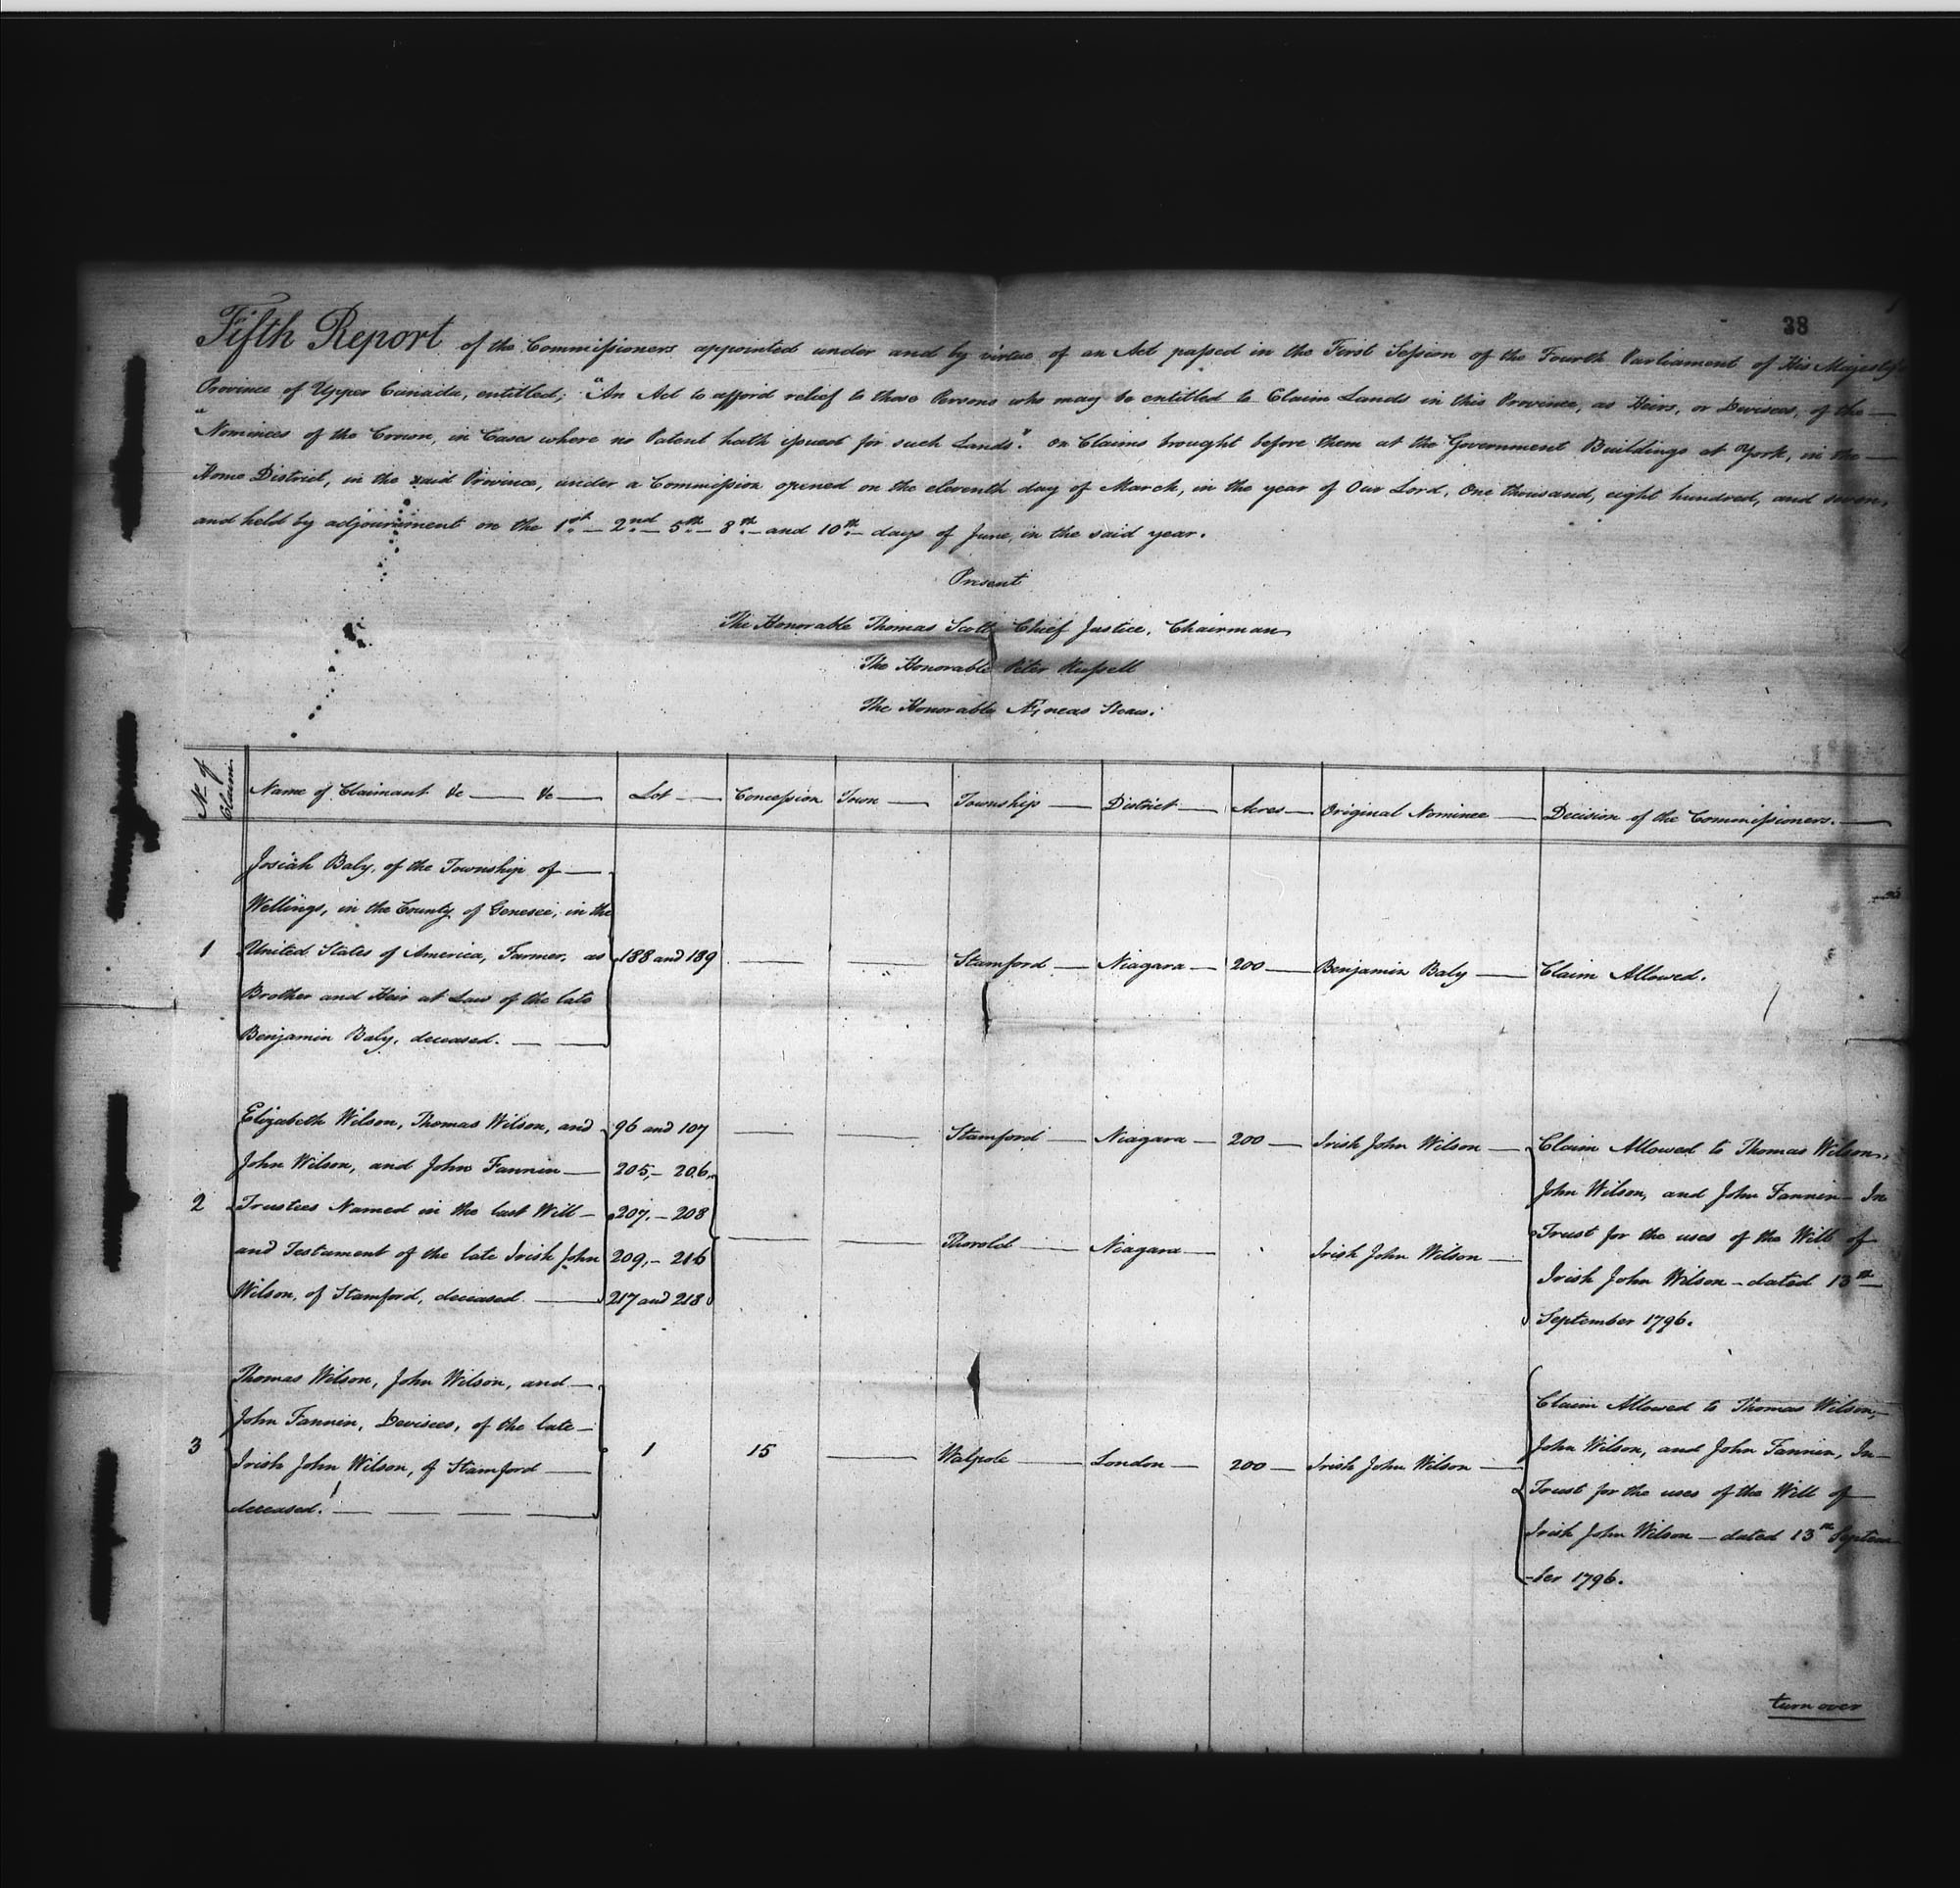 38
Fifth Report of the Commissioners appointed under and by virtue of an Act passed in the First Session of the Fourth Parliament of His Majesty's
Province of Upper Canada, entitled; "An Act to afford relief to those Persons who may be entitled to Claim Lands in this Province, as Heirs, or Devisees, of the —
"Nominees of the Crown, in Cases where no Patent hath issued for such Lands." On Claims brought before them at the Government Buildings at York, in the —
Home District, in the said Province, under a Commission opened on the eleventh day of March, in the year of Our Lord, One thousand, eight hundred, and seven,
and held by adjournment on the 1st — 2nd — 5th — 8th — and 10th — days of June, in the said year.
Present
The Honorable Thomas Scott Chief Justice, Chairman
The Honorable Peter Russell
The Honorable Æneas Shaw.
No. of Claim
Name of Claimant &c — &c —
Lot —
Concession
Town —
Township —
District —
Acres —
Original Nominee —
Decision of the Commissioners. —
1
Josiah Baly, of the Township of —
Wellings, in the County of Genesee, in the
United States of America, Farmer, as
Brother and Heir at Law of the late
Benjamin Baly, deceased. — —
188 and 189 — — Stamford — Niagara — 200 — Benjamin Baly — Claim Allowed.
2
Elizabeth Wilson, Thomas Wilson, and
John Wilson, and John Fannin —
Trustees Named in the last Will —
and Testament of the late Irish John
Wilson, of Stamford, deceased —
96 and 107 — — Stamford — Niagara — 200 — Irish John Wilson —
205, – 206,
207, – 208
209, – 216
217 and 218
— — Thorold — Niagara — Irish John Wilson —
Claim Allowed to Thomas Wilson,
John Wilson, and John Fannin — In
Trust for the uses of the Will of
Irish John Wilson — dated 13th
September 1796.
3
Thomas Wilson, John Wilson, and —
John Fannin, Devisees, of the late —
Irish John Wilson, of Stamford —
deceased. — — — —
1 15 — Walpole — London — 200 — Irish John Wilson —
Claim Allowed to Thomas Wilson,
John Wilson, and John Fannin, In —
Trust for the uses of the Will of
Irish John Wilson — dated 13th Septem
-ber 1796.
turn over